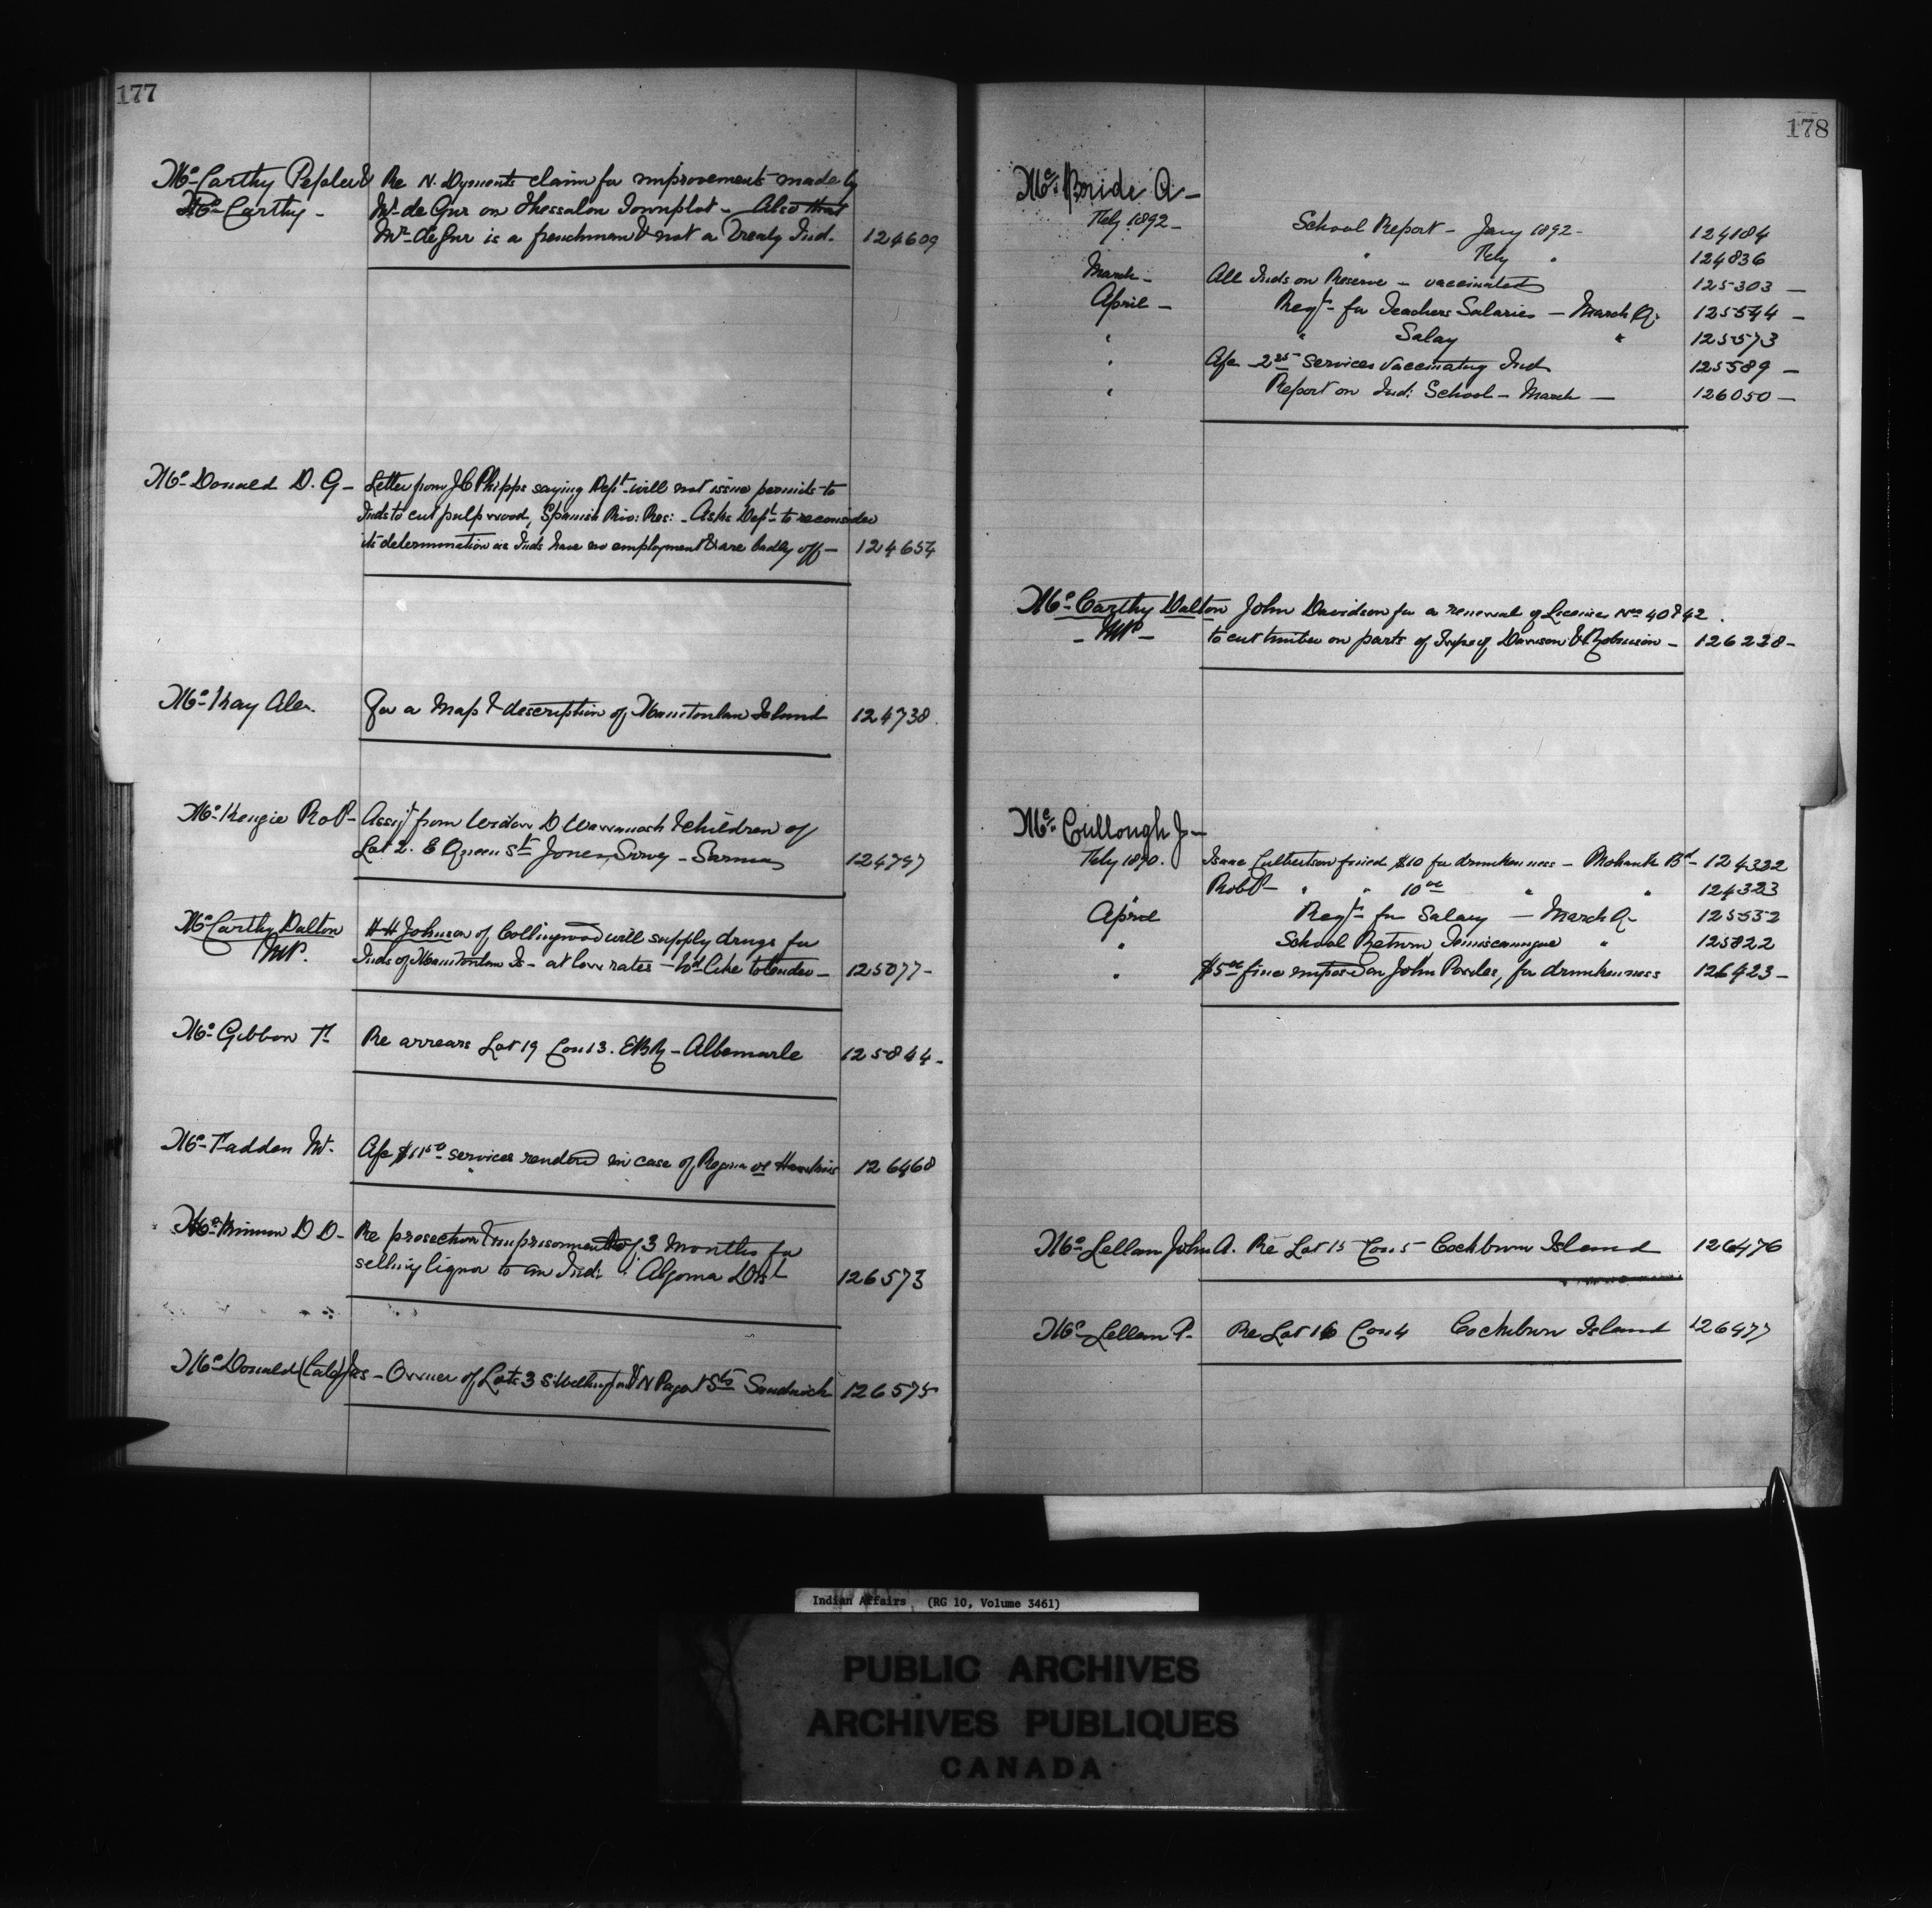 177
McCarthy Pepler &
McCarthy -
Re N. Dyments claim for improvements made by
Mr. de Gur on Thessalon Townplot - Also that
Mr. de Gur is a frenchman & not a Treaty Ind. 124609
McDonald D. G - Letter from J C Phipps saying Dept will not issue permits to
Inds to cut pulp wood, Spanish Riv: Res: - Asks Dept to reconsider
its determination as Inds have no employment & are badly off - 124654
McKay Alex. For a Map & description of Manitoulin Island 124738
McKenzie Robt - Assigt from Widow D Wawanosh & children of
Lot 2. E Queen St Jones Survey - Sarnia 124797
McCarthy Dalton
MP.
H H Johnson of Collingwood will supply drugs for
Inds of Manitoulin Is - at low rates - wd like to tender - 125077 -
McGibbon F Re arrears Lot 19 Con 13. EBR - Albemarle 125844 -
McFadden M. A/c $11.50 services rendered in case of Regina vs Hawkins 126468
McKinnon D D - Re prosection & imprisonment of 3 Months for
selling liquor to an Ind: Algoma Dist 126573
McDonald (Cald) Jas - Owner of Lots 3 S. Wellington & N Sts Sandwich 126575
178
McBride A -
Feby 1892 - School Report - Jany 1892 - 124184
" Feby " 124836
March - All Inds on Reserve - vaccinated 125303 -
April - Reqt for Teachers Salaries - March Qr 125544 -
" " Salay " 125573
" A/c 2.25 services vaccinating Ind 125589 -
" Report on Ind: School - March - 126050 -
McCarthy Dalton John Davidson for a renewal of License Nos 40 & 42.
- MP - to cut timber on parts of Twps of Dawson & Robinson - 126228 -
McCullough J -
Feby 1890. Isaac Culbertson fined $10 for drunkenness - Mohawk Bd - 124322
Robt - " " 10.00 " " 124323
April Reqt for Salary - March Qr 125532
" School Return Temiscamingue " 125822
" $5.00 fine imposed on John Powles, for drunkenness 126423 -
McLellan John A. Re Lot 15 Con 5 Cockburn Island 126476
McLellan P. Re Lot 16 Con 4 Cockburn Island 126477
Indian Affairs (RG 10, Volume 3461)
PUBLIC ARCHIVES
ARCHIVES PUBLIQUES
CANADA